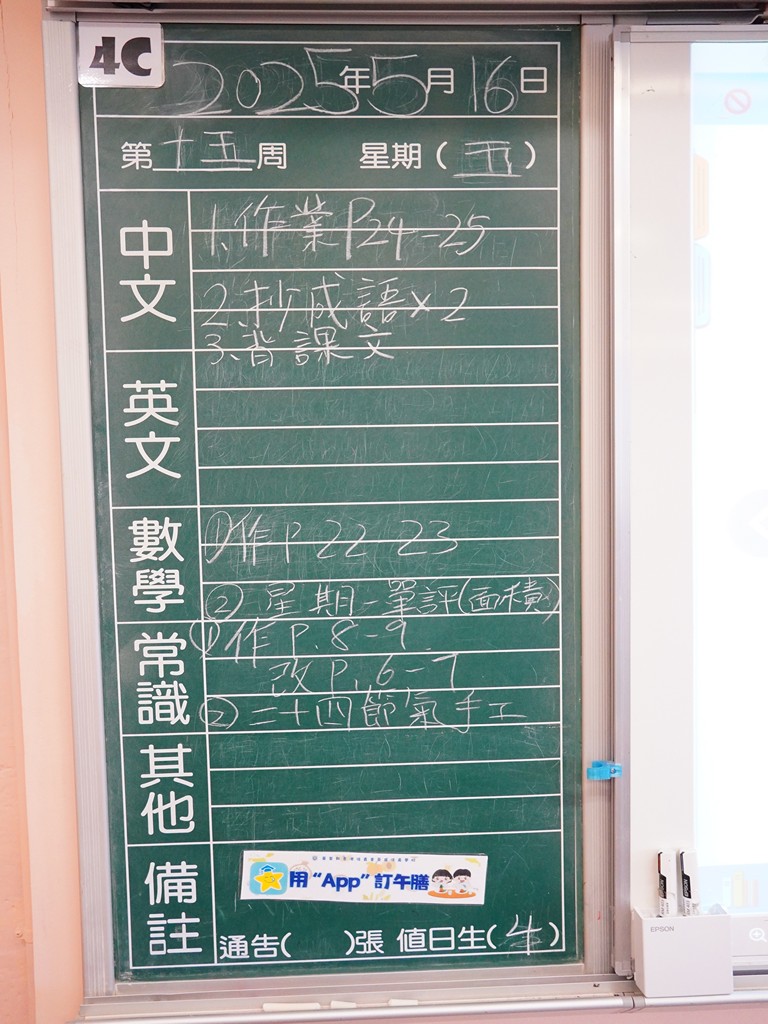 4C
2025年5月16日
第十五周 星期(五)
中文
1.作業P24-25
2.抄成語×2
3.背課文
英文
數學
①作P.22-23
②星期一單評(面積)
常識
①作P.8-9
改P.6-7
②二十四節氣手工
其他
備註
用“App”訂午膳
通告( )張 值日生( )
EPSON